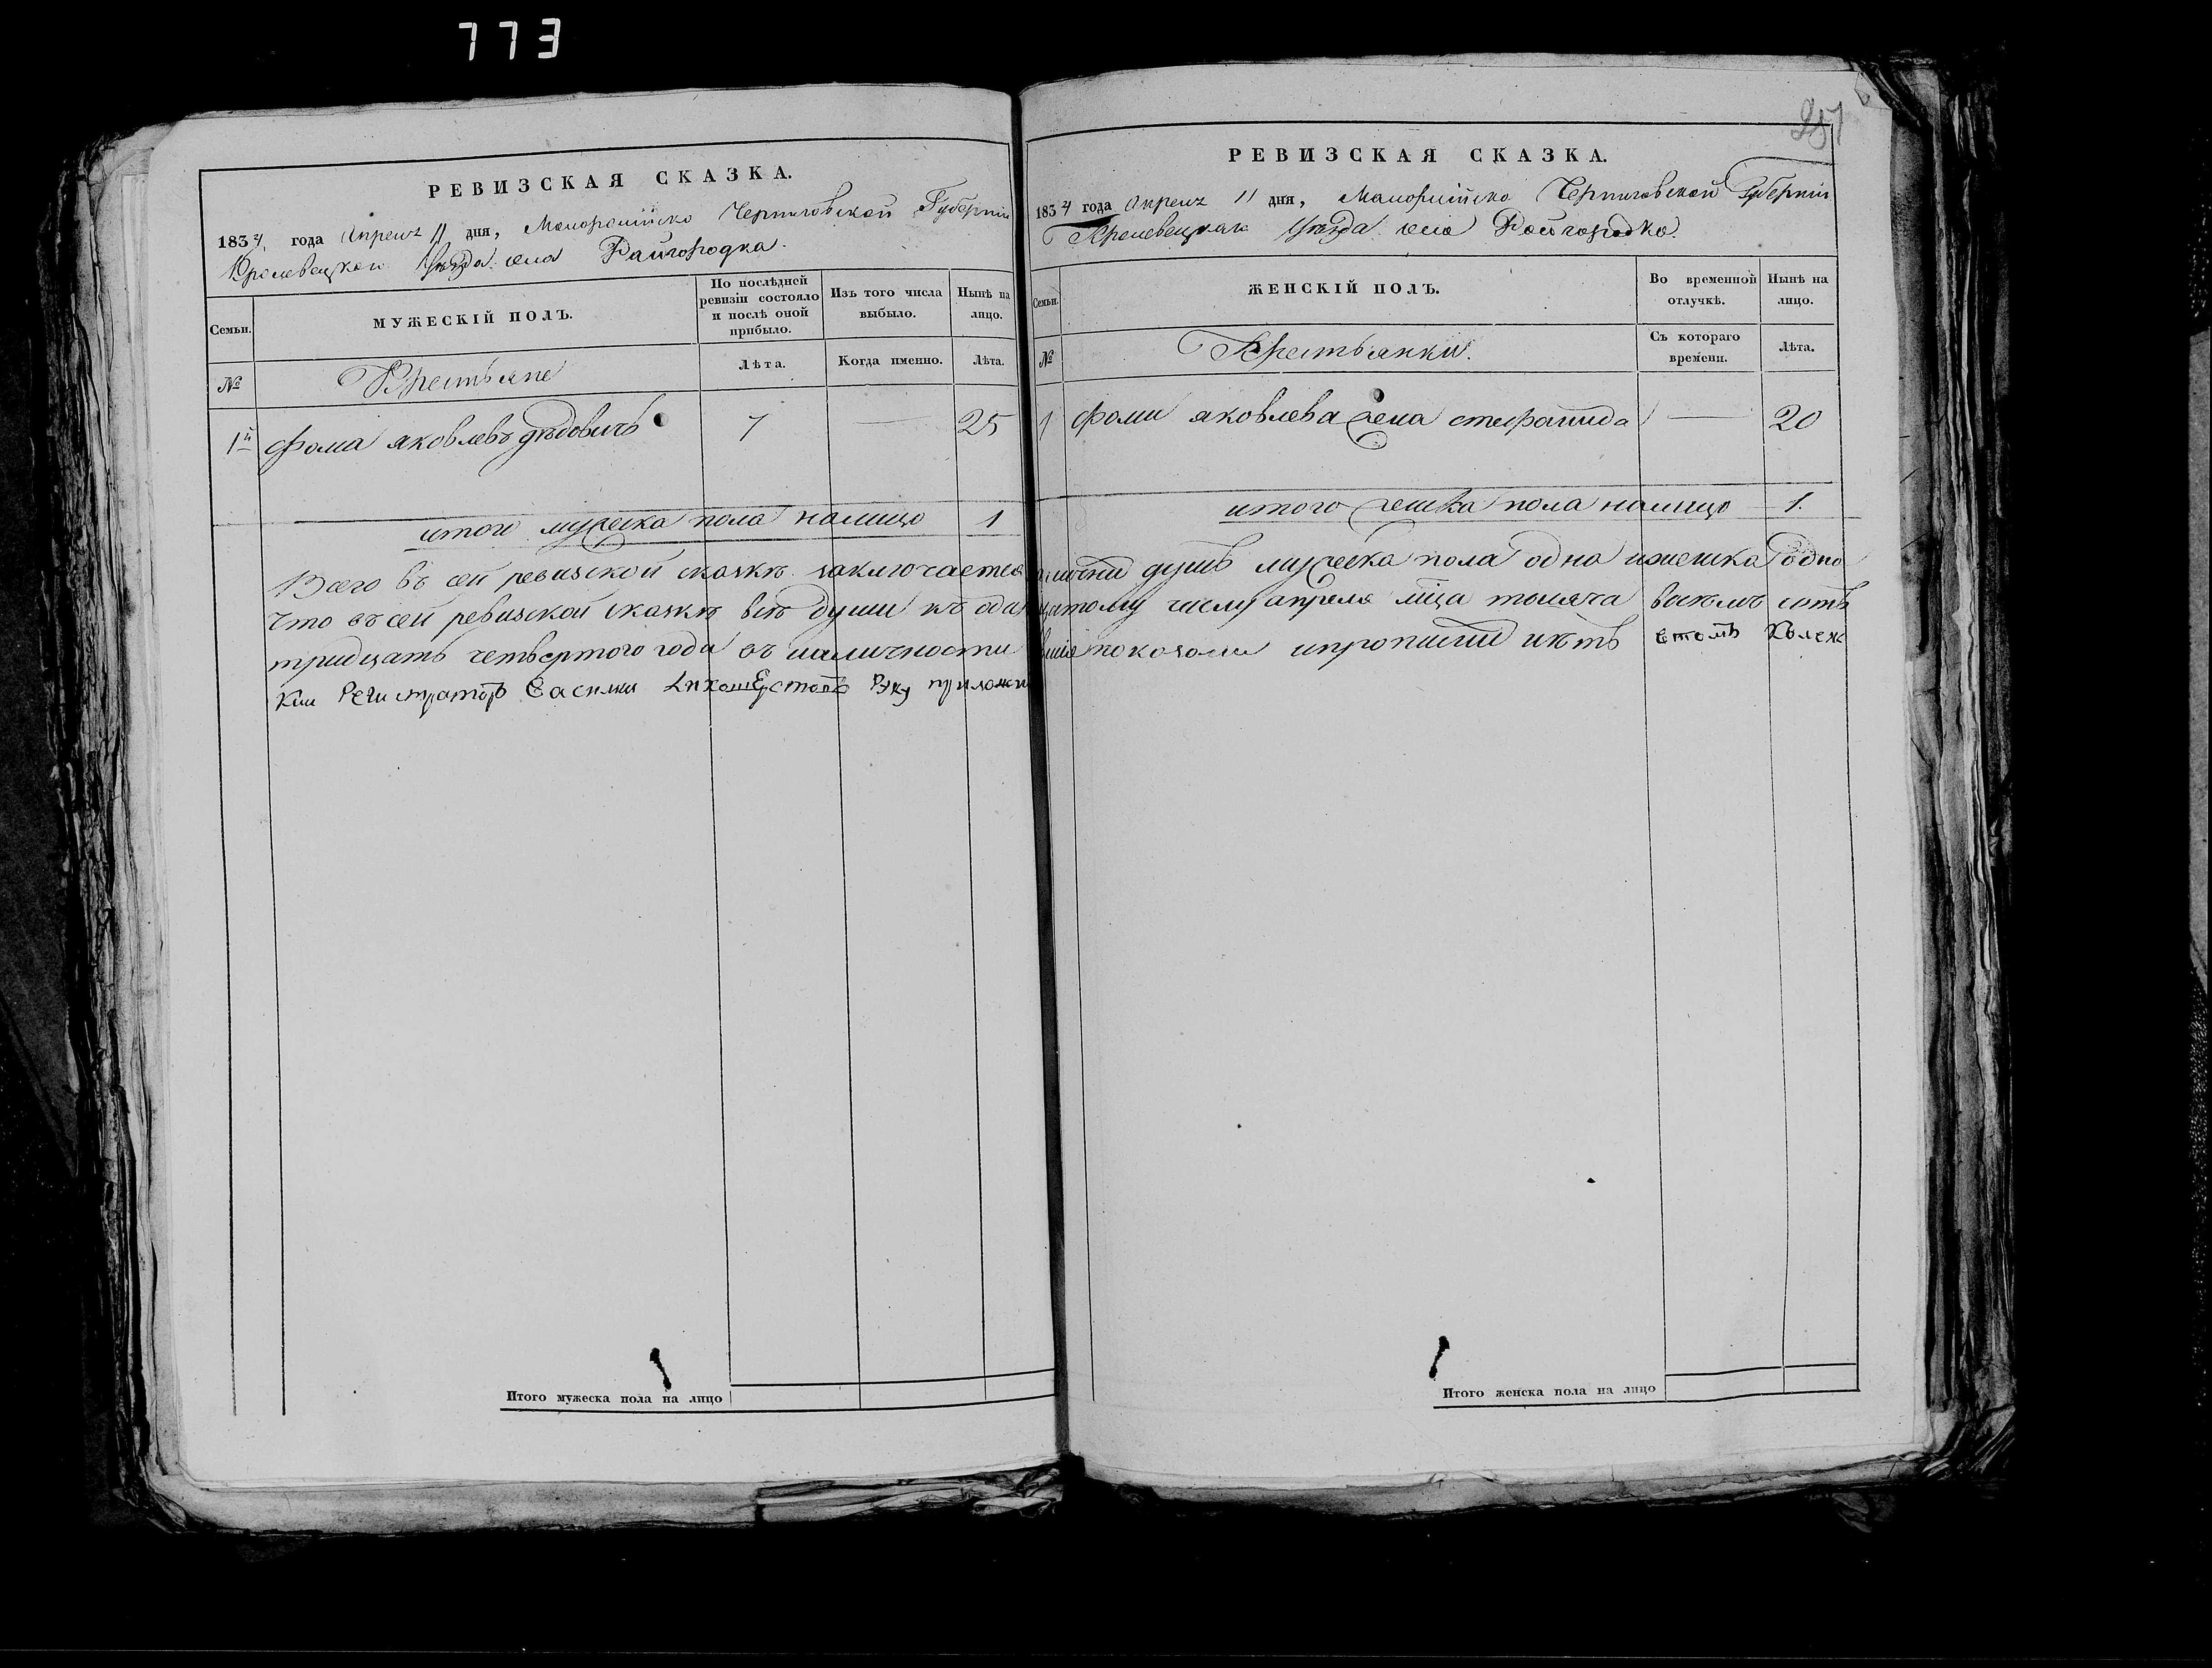 773
РЕВИЗСКАЯ СКАЗКА.
1834 года Апреля 11 дня, Малороссійско Черниговской Губерніи
Кролевецкой Уѣзда села Райгородка.
Семьи.
МУЖЕСКІЙ ПОЛЪ.
По послѣдней ревизіи состояло и послѣ оной прибыло.
Изъ того числа выбыло.
Нынѣ на лицо.
№
Крестьяне
Лѣта.
Когда именно.
Лѣта.
1й Фома яковлевъ дѣдовичъ 7 — 25
итого мужеска пола налицо 1
Всего въ сей ревизской сказкѣ заключается
что въ сей ревизской сказкѣ всѣ души къ один
тридцать четвертого года въ наличности
Кии Регистраторъ Василии Рку приложи
Итого мужеска пола на лицо
257
РЕВИЗСКАЯ СКАЗКА.
1834 года Апреля 11 дня, Малороссійско Черниговской Губерніи
Кролевецкая Уѣзда села Райгородка.
Семьи.
ЖЕНСКІЙ ПОЛЪ.
Во временной отлучкѣ.
Нынѣ на лицо.
№
Крестьянки.
Съ котораго времени.
Лѣта.
1 Фомы яковлева жена стефанида — 20
итого женска пола налицо 1.
душъ мужеска пола одна и женска одна
цатому числу апреля мца тысяча восемъ сотъ
и прописи нѣтъ втомъ Колеж
Итого женска пола на лицо